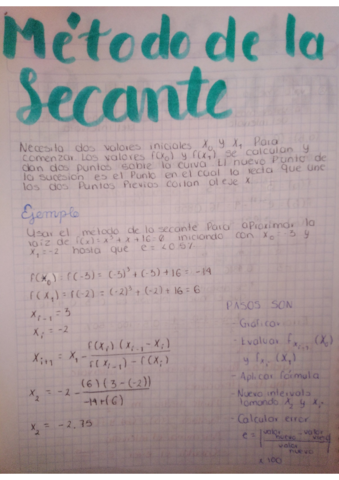 Método de la
Secante
Necesita dos valores iniciales x₀ y x₁. Para
comenzar los valores f(x₀) y f(x₁) se calculan y
dan dos puntos sobre la curva. El nuevo punto de
la sucesión es el punto en el cual la recta que une
los dos puntos previos cortan al eje x.
Ejemplo
Usar el metodo de la secante para aproximar la
raíz de f(x)= x³ + x + 16 = 0 iniciando con x₀ = 3 y
x₁ = -2 hasta que e = <0.5%
f(x₀) = f(-3) = (-3)³ + (-3) + 16 = -14
f(x₁) = f(-2) = (-2)³ + (-2) + 16 = 6
xᵢ₋₁ = 3
xᵢ = -2
xᵢ₊₁ = x₁ - f(xᵢ) (xᵢ₋₁ - xᵢ) / f(xᵢ₋₁) - f(xᵢ)
x₂ = -2 - (6) (3 - (-2)) / -14 + (6)
x₂ = -2.75
PASOS SON
- Graficar
- Evaluar (x₀)
y (x₁)
- Aplicar formula
- Nuevo intervalo
tomando x₂ y
- Calcular error
e = valor nuevo - valor / valor nuevo
x 100